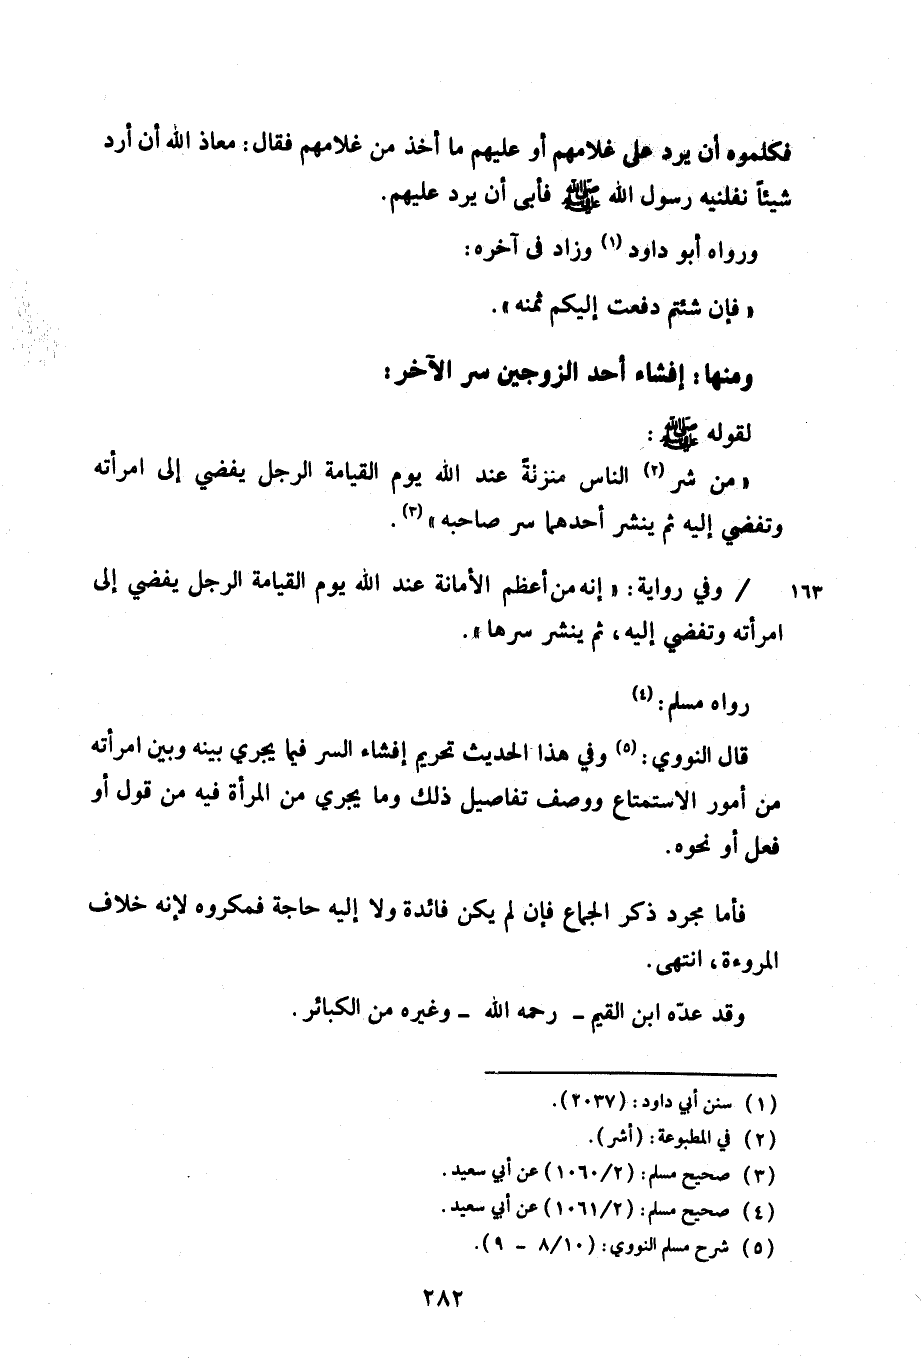 فكلموه أن يرد على غلامهم أو عليهم ما أخذ من غلامهم فقال: معاذ الله أن أرد
شيئاً نفلنيه رسول الله ﷺ فأبى أن يرد عليهم.
ورواه أبو داود (١) وزاد فى آخره:
« فإن شئتم دفعت إليكم ثمنه ».
ومنها: إفشاء أحد الزوجين سر الآخر:
لقوله ﷺ :
« من شر (٢) الناس منزلةً عند الله يوم القيامة الرجل يفضي إلى امرأته
وتفضي إليه ثم ينشر أحدهما سر صاحبه » (٣) .
١٦٣ / وفي رواية: « إنه من أعظم الأمانة عند الله يوم القيامة الرجل يفضي إلى
امرأته وتفضي إليه، ثم ينشر سرها ».
رواه مسلم: (٤)
قال النووي: (٥) وفي هذا الحديث تحريم إفشاء السر فيما يجري بينه وبين امرأته
من أمور الاستمتاع ووصف تفاصيل ذلك وما يجري من المرأة فيه من قول أو
فعل أو نحوه.
فأما مجرد ذكر الجماع فإن لم يكن فائدة ولا إليه حاجة فمكروه لإنه خلاف
المروءة، انتهى.
وقد عدّه ابن القيم - رحمه الله - وغيره من الكبائر .
(١) سنن أبي داود: (٢٠٣٧).
(٢) في المطبوعة: (أشر).
(٣) صحيح مسلم: (١٠٦٠/٢) عن أبي سعيد.
(٤) صحيح مسلم: (١٠٦١/٢) عن أبي سعيد.
(٥) شرح مسلم النووي: (٨/١٠ - ٩).
٢٨٢